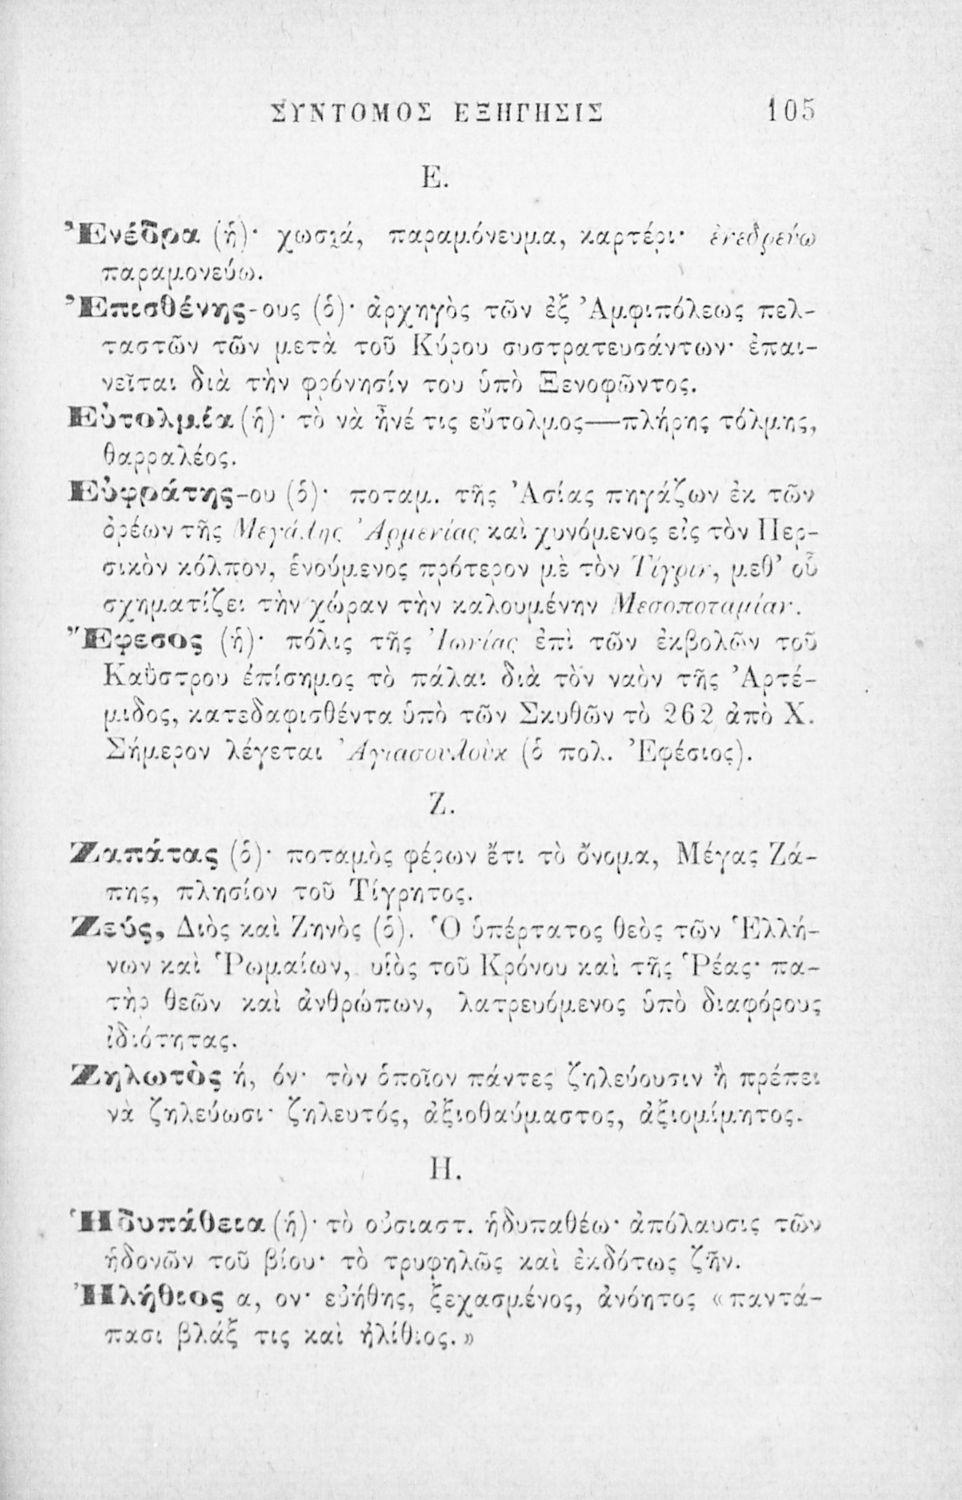 ΣΥΝΤΟΜΟΣ ΕΞΗΓΗΣΙΣ 105
Ε.
Ἐνέδρα (ἡ)· χωσιά, παραμόνευμα, καρτέρι· ἐνεδρεύω
παραμονεύω.
Ἐπισθένης-ους (ὁ)· ἀρχηγὸς τῶν ἐξ Ἀμφιπόλεως πελ-
ταστῶν τῶν μετὰ τοῦ Κύρου συστρατευσάντων· ἐπαι-
νεῖται διὰ τὴν φρόνησίν του ὑπὸ Ξενοφῶντος.
Εὐτολμία (ἡ)· τὸ νὰ ἦνέ τις εὔτολμος—πλήρης τόλμης,
θαρραλέος.
Εὐφράτης-ου (ὁ)· ποταμ. τῆς Ἀσίας πηγάζων ἐκ τῶν
ὀρέων τῆς Μεγάλης Ἀρμενίας καὶ χυνόμενος εἰς τὸν Περ-
σικὸν κόλπον, ἑνούμενος πρότερον μὲ τὸν Τίγριν, μεθ' οὗ
σχηματίζει τὴν χώραν τὴν καλουμένην Μεσοποταμίαν.
Ἔφεσος (ἡ)· πόλις τῆς Ἰωνίας ἐπὶ τῶν ἐκβολῶν τοῦ
Καΰστρου ἐπίσημος τὸ πάλαι διὰ τὸν ναὸν τῆς Ἀρτέ-
μιδος, κατεδαφισθέντα ὑπὸ τῶν Σκυθῶν τὸ 262 ἀπὸ Χ.
Σήμερον λέγεται Ἁγιασουλοὺκ (ὁ πολ. Ἐφέσιος).
Ζ.
Ζαπάτας (ὁ)· ποταμὸς φέρων ἔτι τὸ ὄνομα, Μέγας Ζά-
πης, πλησίον τοῦ Τίγρητος.
Ζεύς, Διὸς καὶ Ζηνὸς (ὁ). Ὁ ὑπέρτατος θεὸς τῶν Ἑλλή-
νων καὶ Ῥωμαίων, υἱὸς τοῦ Κρόνου καὶ τῆς Ῥέας· πα-
τὴρ θεῶν καὶ ἀνθρώπων, λατρευόμενος ὑπὸ διαφόρους
ἰδιότητας.
Ζηλωτὸς ή, όν· τὸν ὁποῖον πάντες ζηλεύουσιν ἢ πρέπει
νὰ ζηλεύωσι· ζηλευτός, ἀξιοθαύμαστος, ἀξιομίμητος.
Η.
Ἡδυπάθεια (ἡ)· τὸ οὐσιαστ. ἡδυπαθέω· ἀπόλαυσις τῶν
ἡδονῶν τοῦ βίου· τὸ τρυφηλῶς καὶ ἐκδότως ζῆν.
Ἠλήθιος α, ον· εὐήθης, ξεχασμένος, ἀνόητος «παντά-
πασι βλάξ τις καὶ ἠλίθιος.»